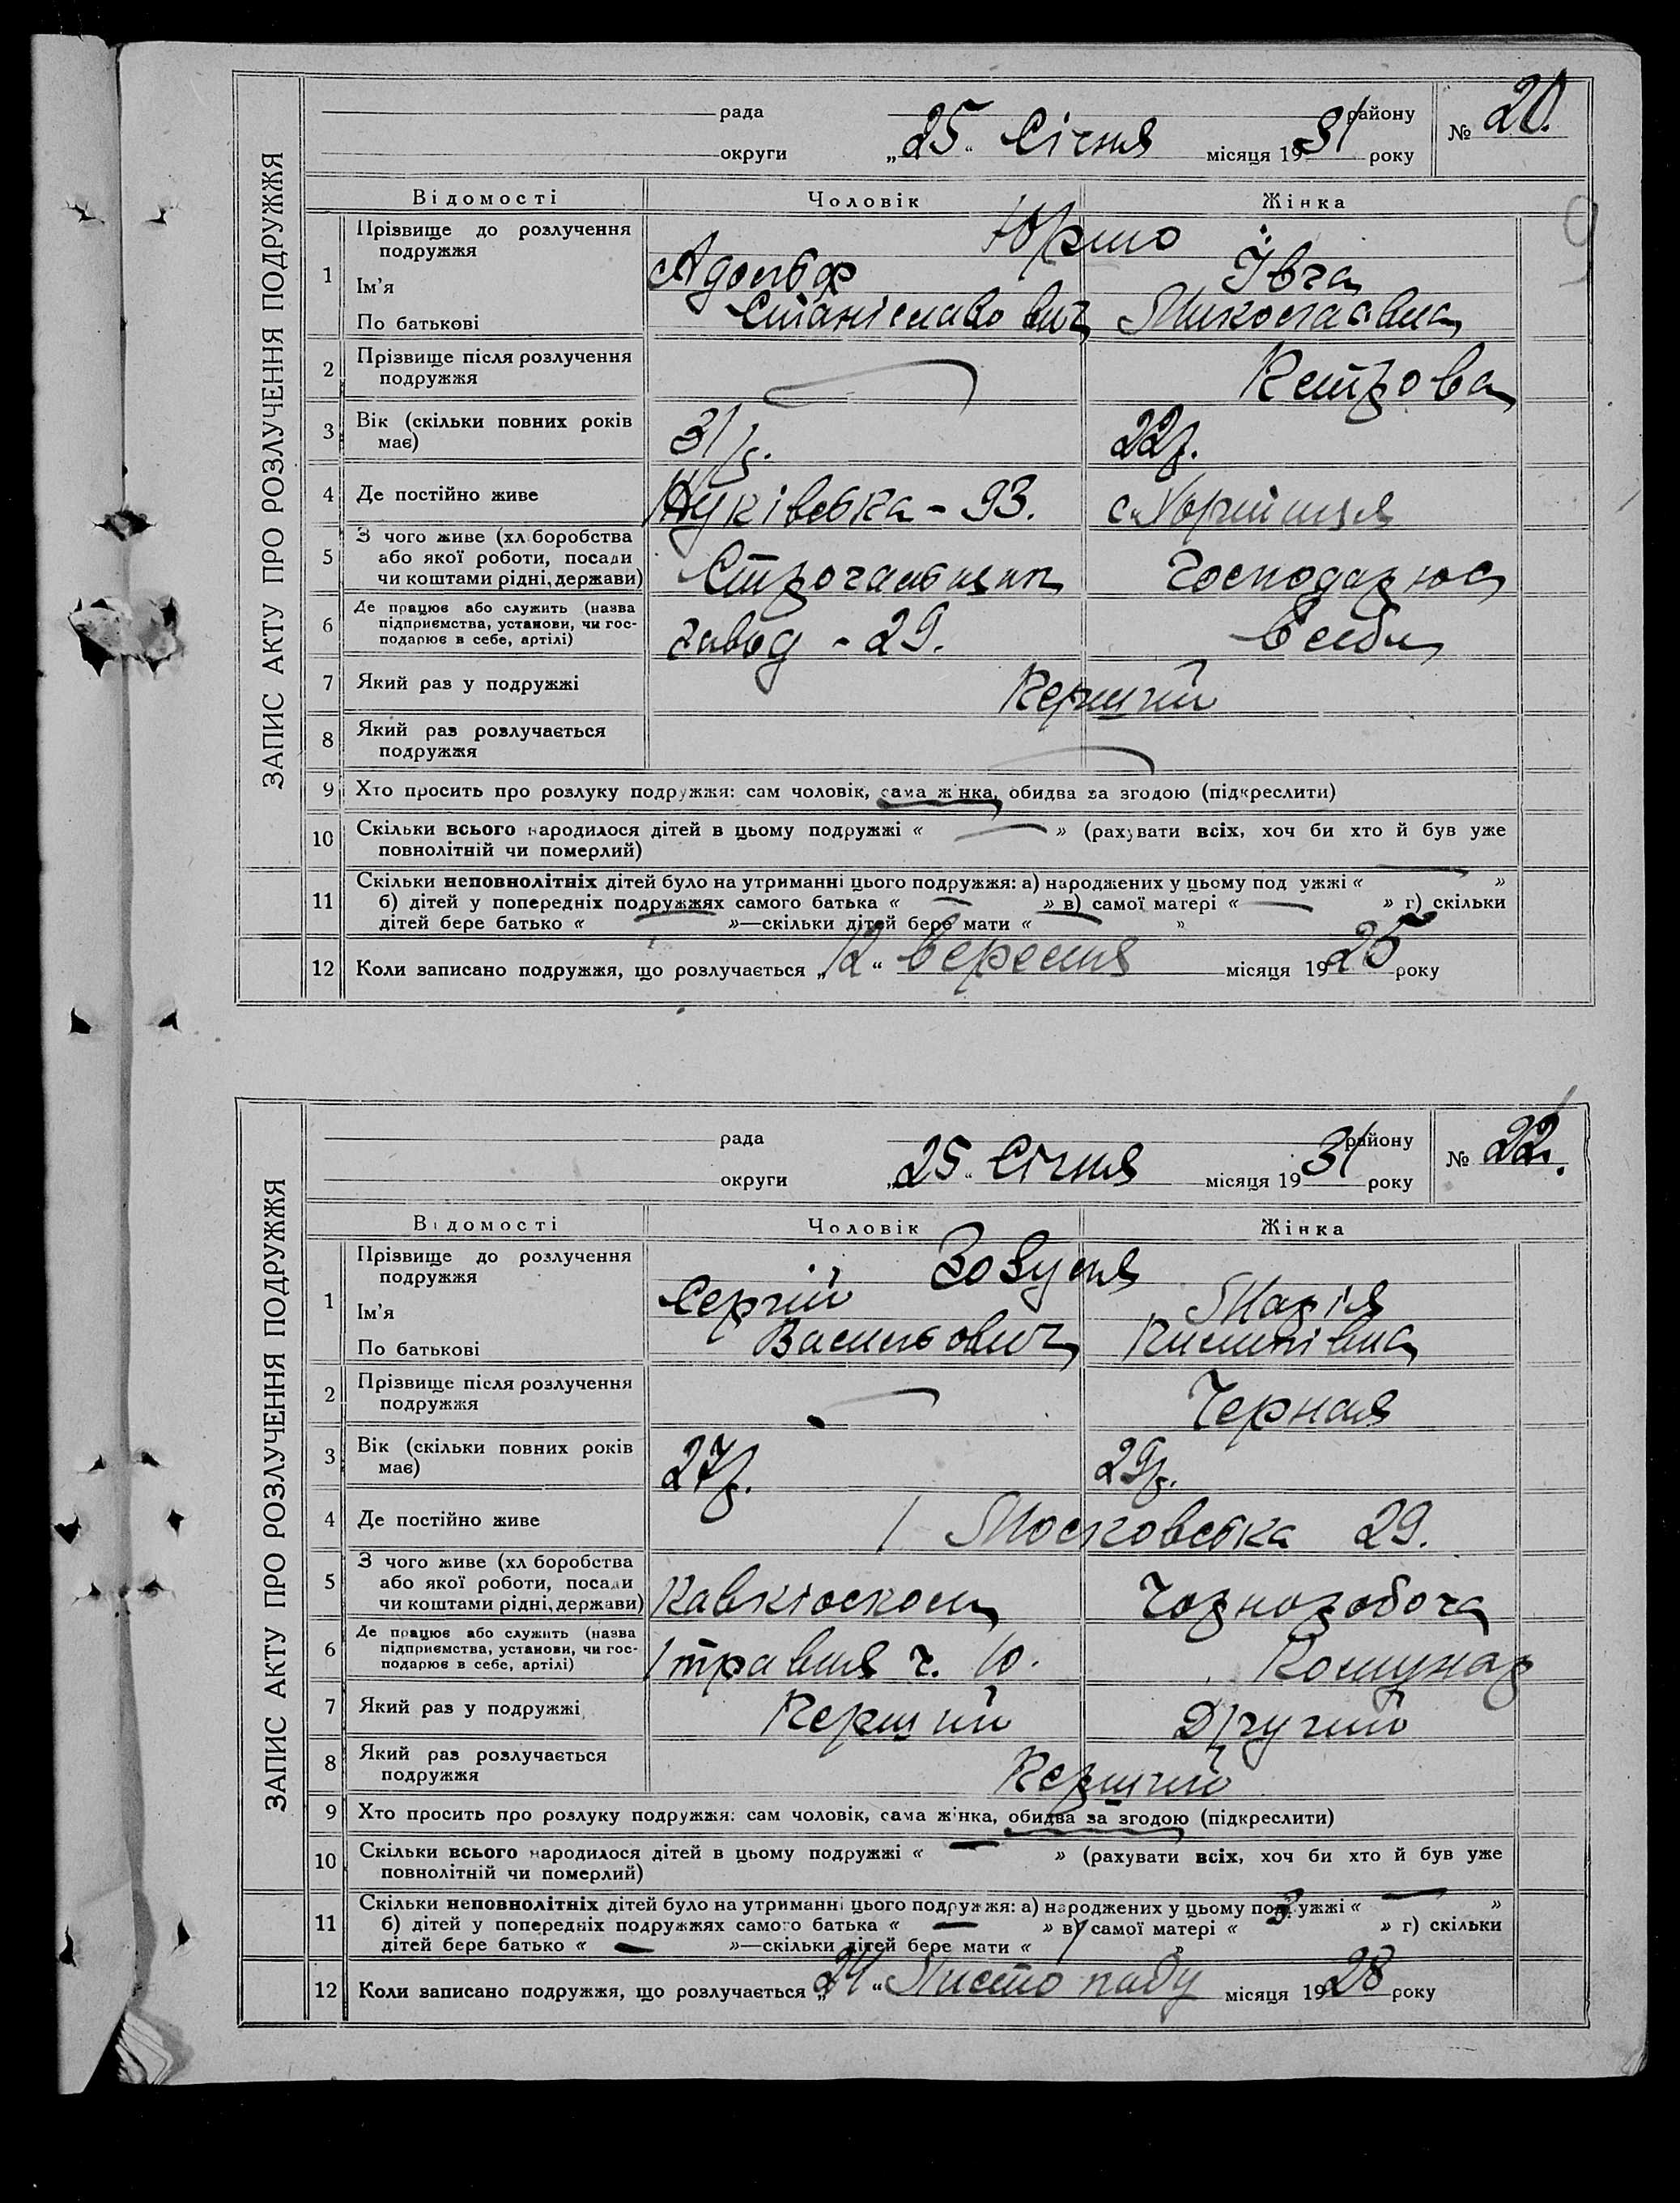 ЗАПИС АКТУ ПРО РОЗЛУЧЕННЯ ПОДРУЖЖЯ
рада району № 20.
округи „25“ Січня місяця 1931 року
Відомості Чоловік Жінка
1 Прізвище до розлучення подружжя Юршо
Ім'я Адольф Івга
По батькові Станіславович Миколаєвна
2 Прізвище після розлучення подружжя — Петрова
3 Вік (скільки повних років має) 31 р. 22 р.
4 Де постійно живе 93. с.
5 З чого живе (хліборобства або якої роботи, посади чи коштами рідні, держави) Строгальщик Господарює
6 Де працює або служить (назва підприємства, установи, чи господарює в себе, артілі) завод - 29. в себе
7 Який раз у подружжі Перший
8 Який раз розлучається подружжя —
9 Хто просить про розлуку подружжя: сам чоловік, сама жінка, обидва за згодою (підкреслити)
10 Скільки всього народилося дітей в цьому подружжі « — » (рахувати всіх, хоч би хто й був уже
повнолітній чи померлий)
11 Скільки неповнолітніх дітей було на утриманні цього подружжя: а) народжених у цьому подружжі « — »
б) дітей у попередніх подружжях самого батька « — » в) самої матері « — » г) скільки
дітей бере батько « — »—скільки дітей бере мати « — »
12 Коли записано подружжя, що розлучається „12“ вересня місяця 1925 року
ЗАПИС АКТУ ПРО РОЗЛУЧЕННЯ ПОДРУЖЖЯ
рада району № 22.
округи „25“ Січня місяця 1931 року
Відомості Чоловік Жінка
1 Прізвище до розлучення подружжя Зозуля
Ім'я Сергій Марія
По батькові Васильович
2 Прізвище після розлучення подружжя — Черная
3 Вік (скільки повних років має) 27 р. 29 р.
4 Де постійно живе Московська 29.
5 З чого живе (хліборобства або якої роботи, посади чи коштами рідні, держави) Завкіоском Чорноробоча
6 Де працює або служить (назва підприємства, установи, чи господарює в себе, артілі) 1 травня ч. 10. Комунар
7 Який раз у подружжі Перший Другий
8 Який раз розлучається подружжя Перший
9 Хто просить про розлуку подружжя: сам чоловік, сама жінка, обидва за згодою (підкреслити)
10 Скільки всього народилося дітей в цьому подружжі « — » (рахувати всіх, хоч би хто й був уже
повнолітній чи померлий)
11 Скільки неповнолітніх дітей було на утриманні цього подружжя: а) народжених у цьому подружжі « — »
б) дітей у попередніх подружжях самого батька « — » в) самої матері « » г) скільки
дітей бере батько « — »—скільки дітей бере мати « »
12 Коли записано подружжя, що розлучається „24“ Листопаду місяця 1928 року